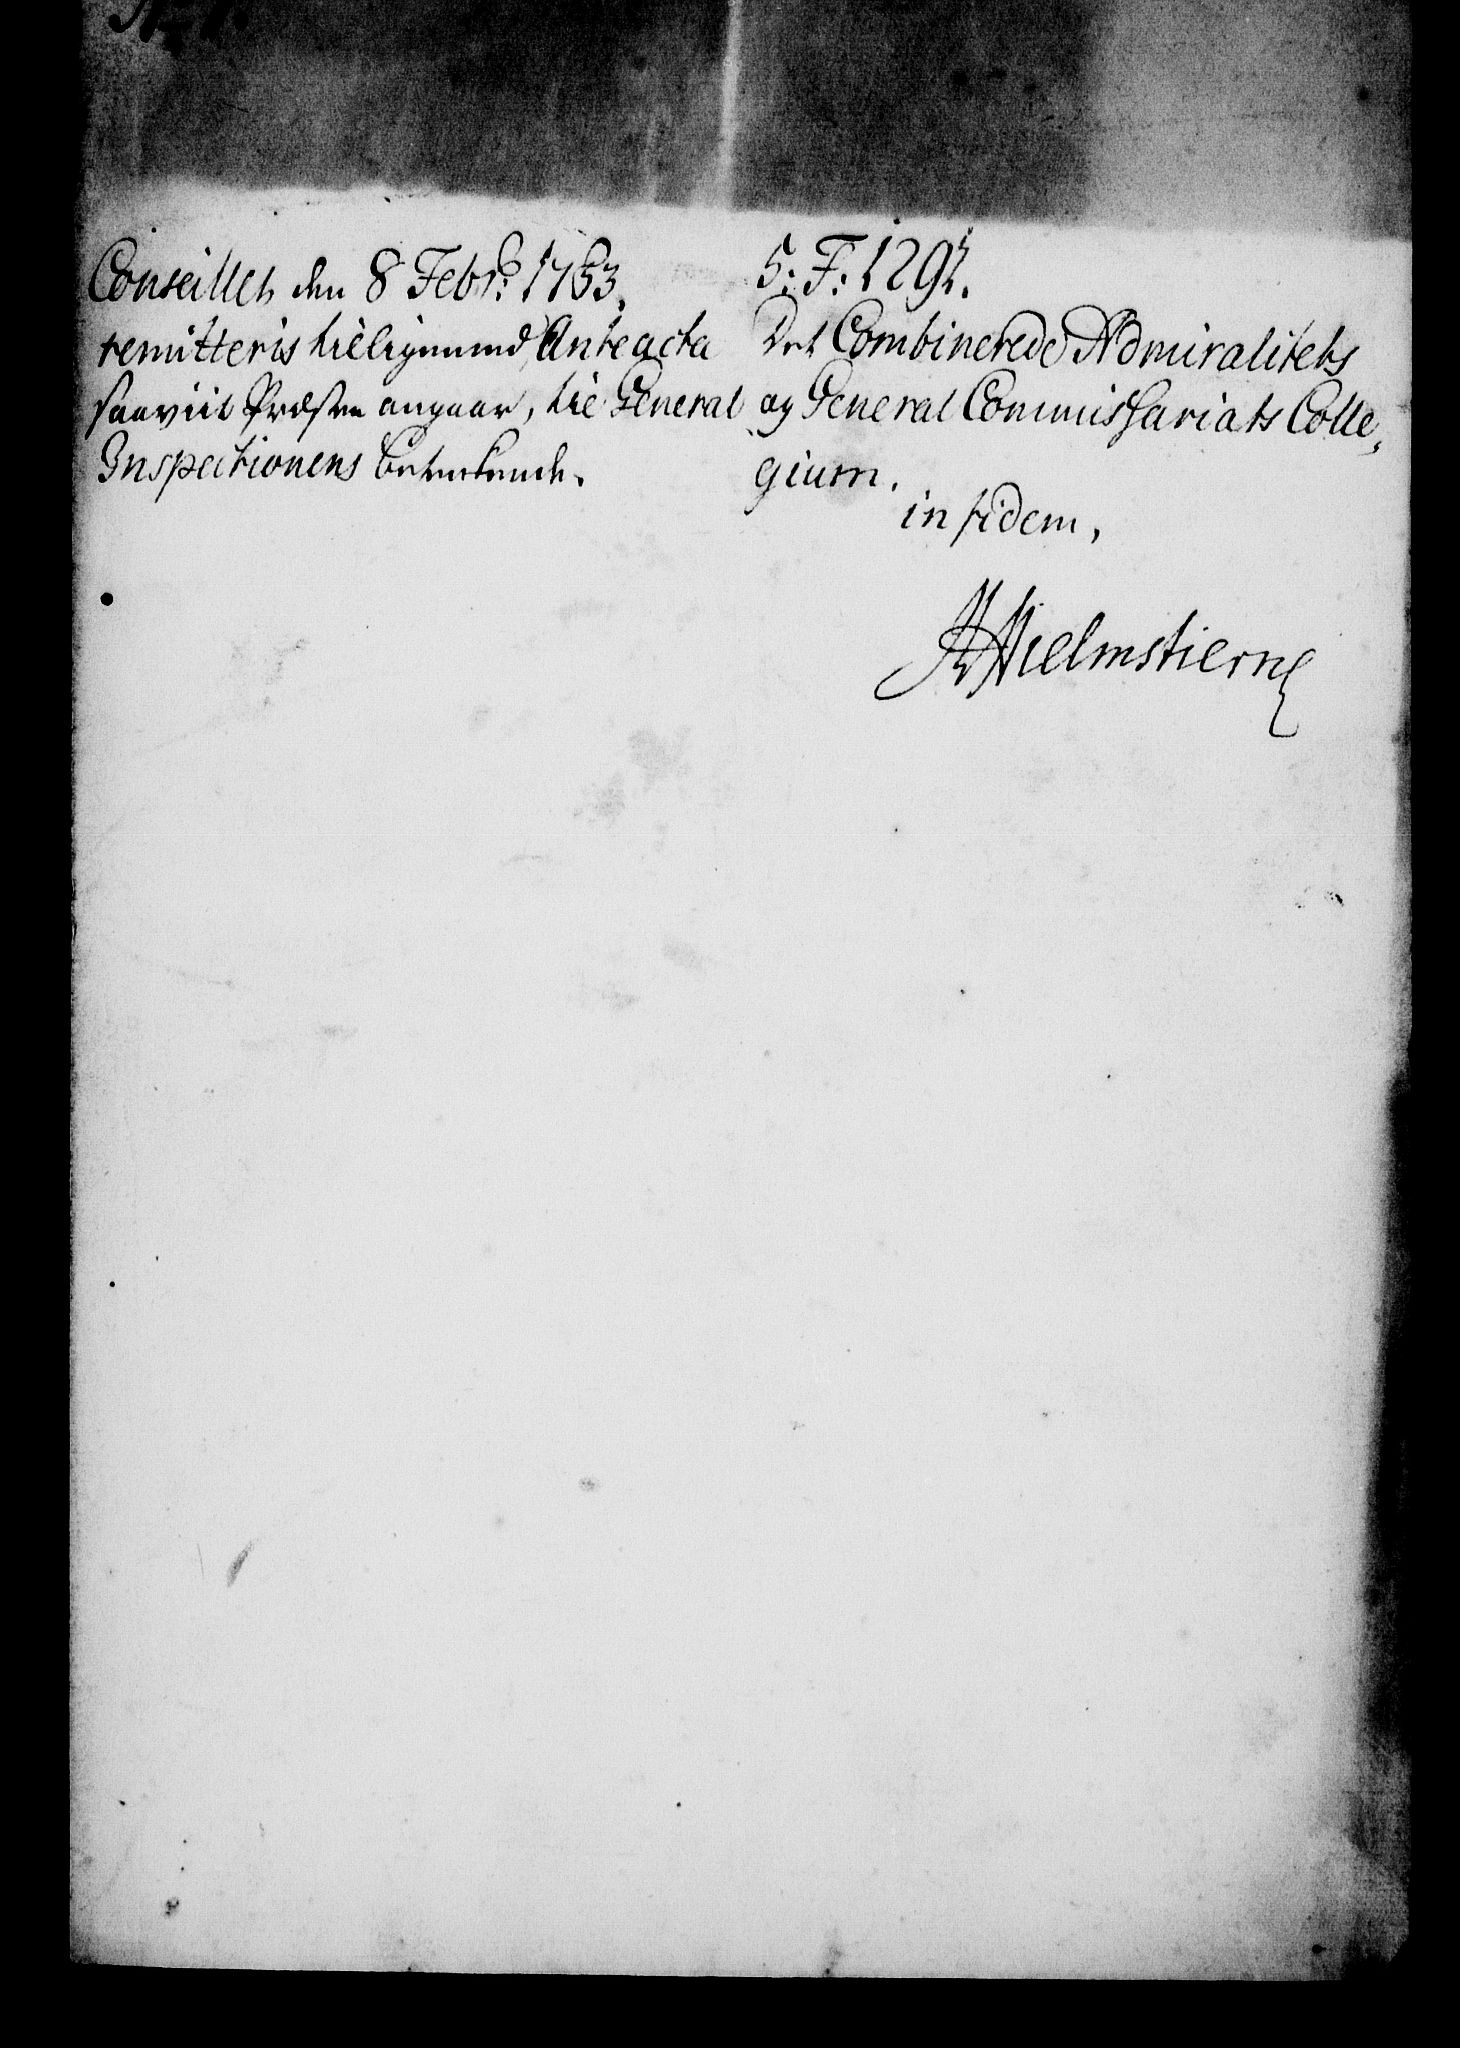 No 1.
Conseillet den 8 Febr: 1763.
remitteris tilligemed Anteacta
saaviit Præsten angaar, til General
Inspectionens betenkende.
S: F: 1291.
Det Combinerede Admiralitets
og General Commissariats Colle,
gium.
in fidem,
H Hielmstierne